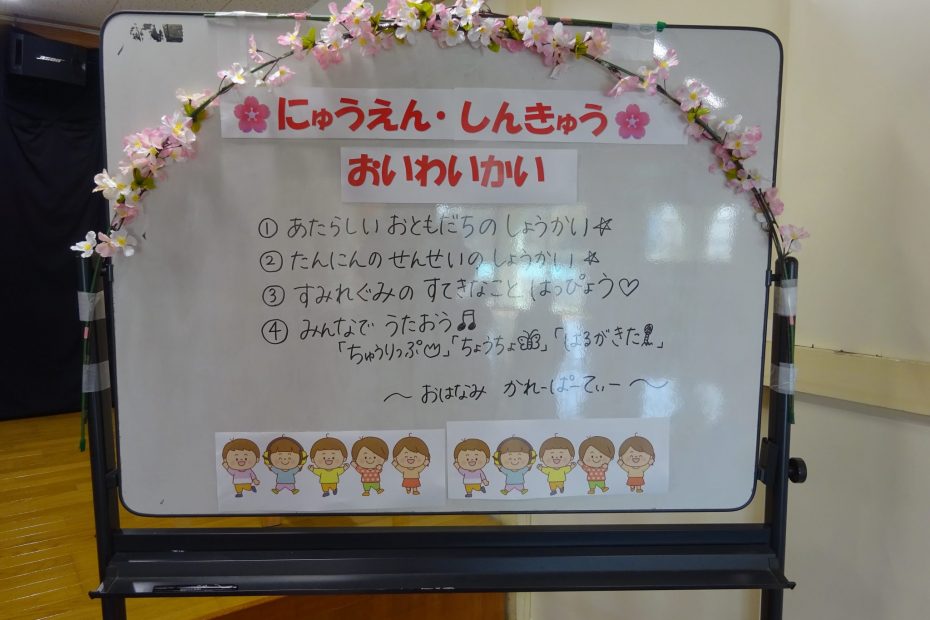 BOSE
にゅうえん・しんきゅう
おいわいかい
① あたらしい おともだちの しょうかい☆
② たんにんの せんせいの しょうかい☆
③ すみれぐみの すてきなこと はっぴょう♡
④ みんなで うたおう♫
「ちゅうりっぷ」「ちょうちょ」「はるがきた」
～ おはなみ かれーぱーてぃー ～